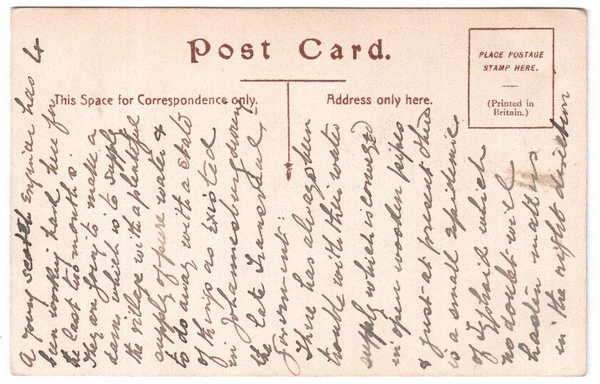 Post Card.
PLACE POSTAGE
STAMP HERE.
(Printed in
Britain.)
This Space for Correspondence only.
Address only here.
4
A young Scotch Engineer has
been working hard here for
the last two months.
They are going to make a
dam which is to supply
the village with a plentiful
supply of pure water &
to do away with a state
of things as existed
in Johannesburg during
the late Transvaal
Government.
There has always been
trouble with their water
supply which is conveyed
in open wooden pipes
& just at present there
is a small epidemic
of Typhoid which
no doubt will
hasten matters
in the right direction